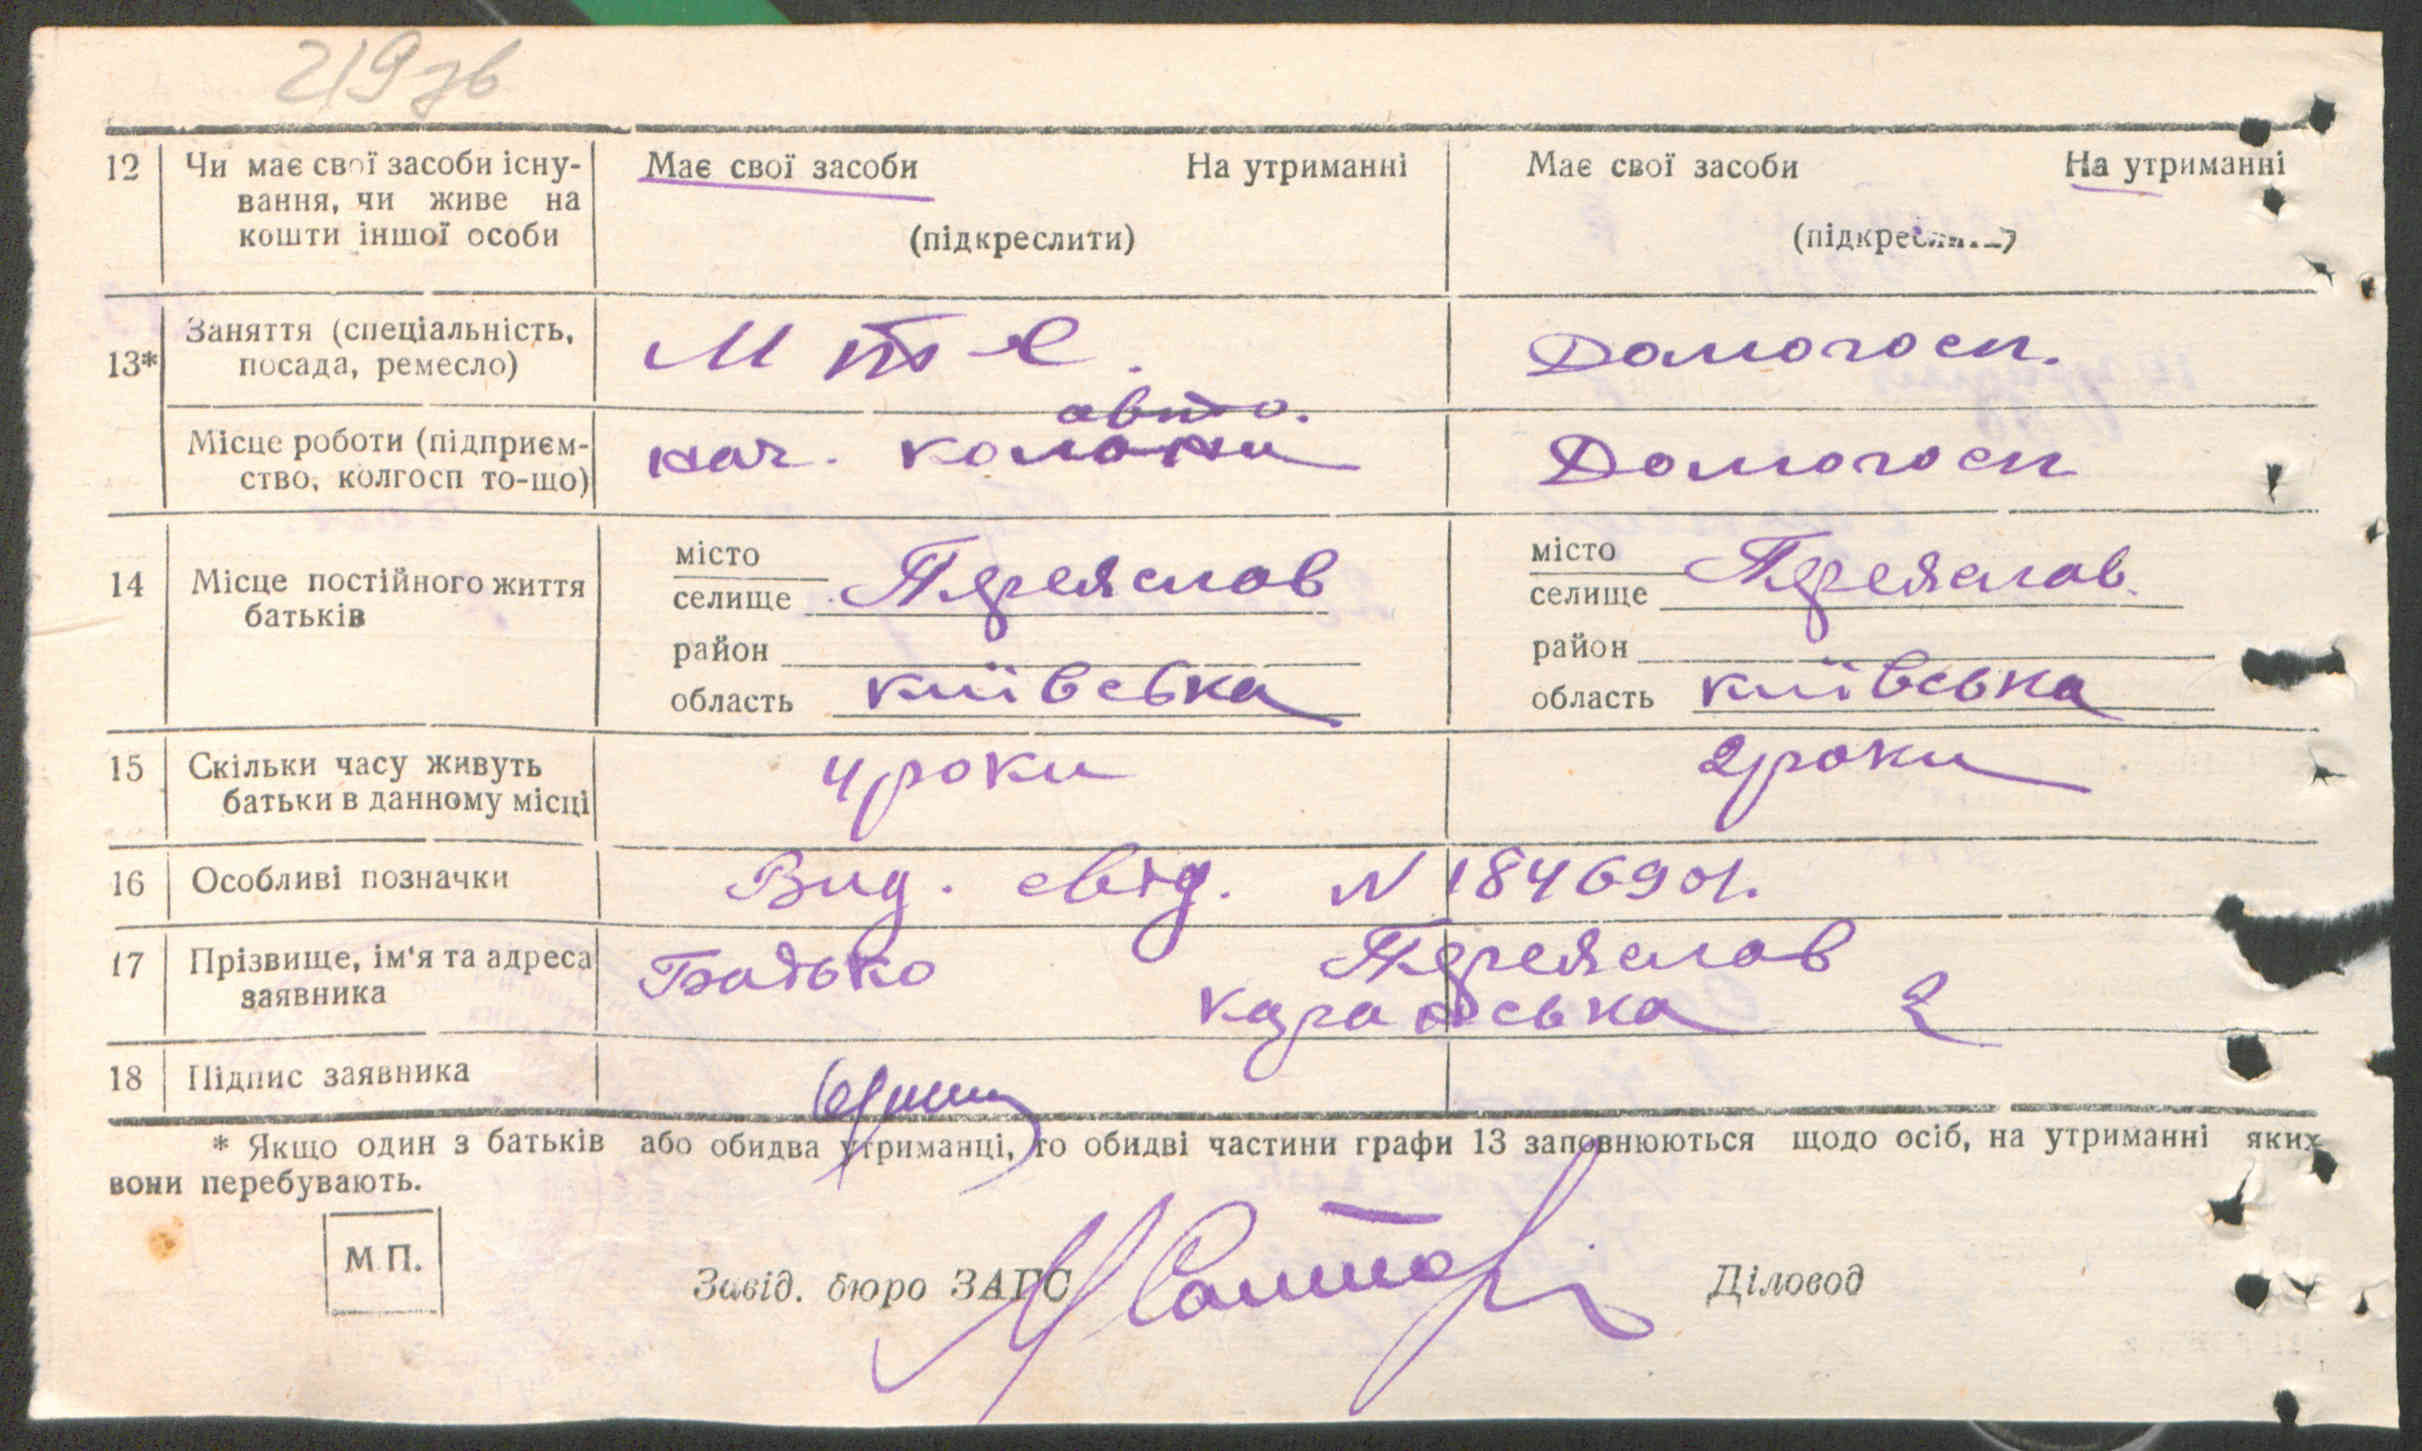 219 зв
12 Чи має свої засоби існу- Має свої засоби На утриманні Має свої засоби На утриманні
вання, чи живе на
кошти іншої особи (підкреслити) (підкреслити)
13* Заняття (спеціальність, М т с. Домогосп.
посада, ремесло)
авто.
Місце роботи (підприєм- нач. колони Домогосп
ство, колгосп то-що)
14 Місце постійного життя місто Переяслав місто Переяслав.
батьків селище селище
район район
область київська область київська
15 Скільки часу живуть 4 роки 2 роки
батьки в данному місці
16 Особливі позначки Вид. свід. N 184690
17 Прізвище, ім'я та адреса Батько Переяслав
заявника 2
18 Підпис заявника
* Якщо один з батьків або обидва утриманці, то обидві частини графи 13 заповнюються щодо осіб, на утриманні яких
вони перебувають.
М.П.
Завід. бюро ЗАГС Діловод